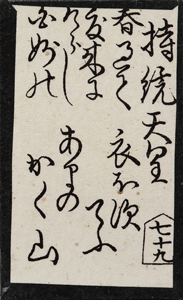 持統天皇
七十九
春過て
夏来尓
けらし
白妙の
衣ほ須
てふ
あまの
かく山